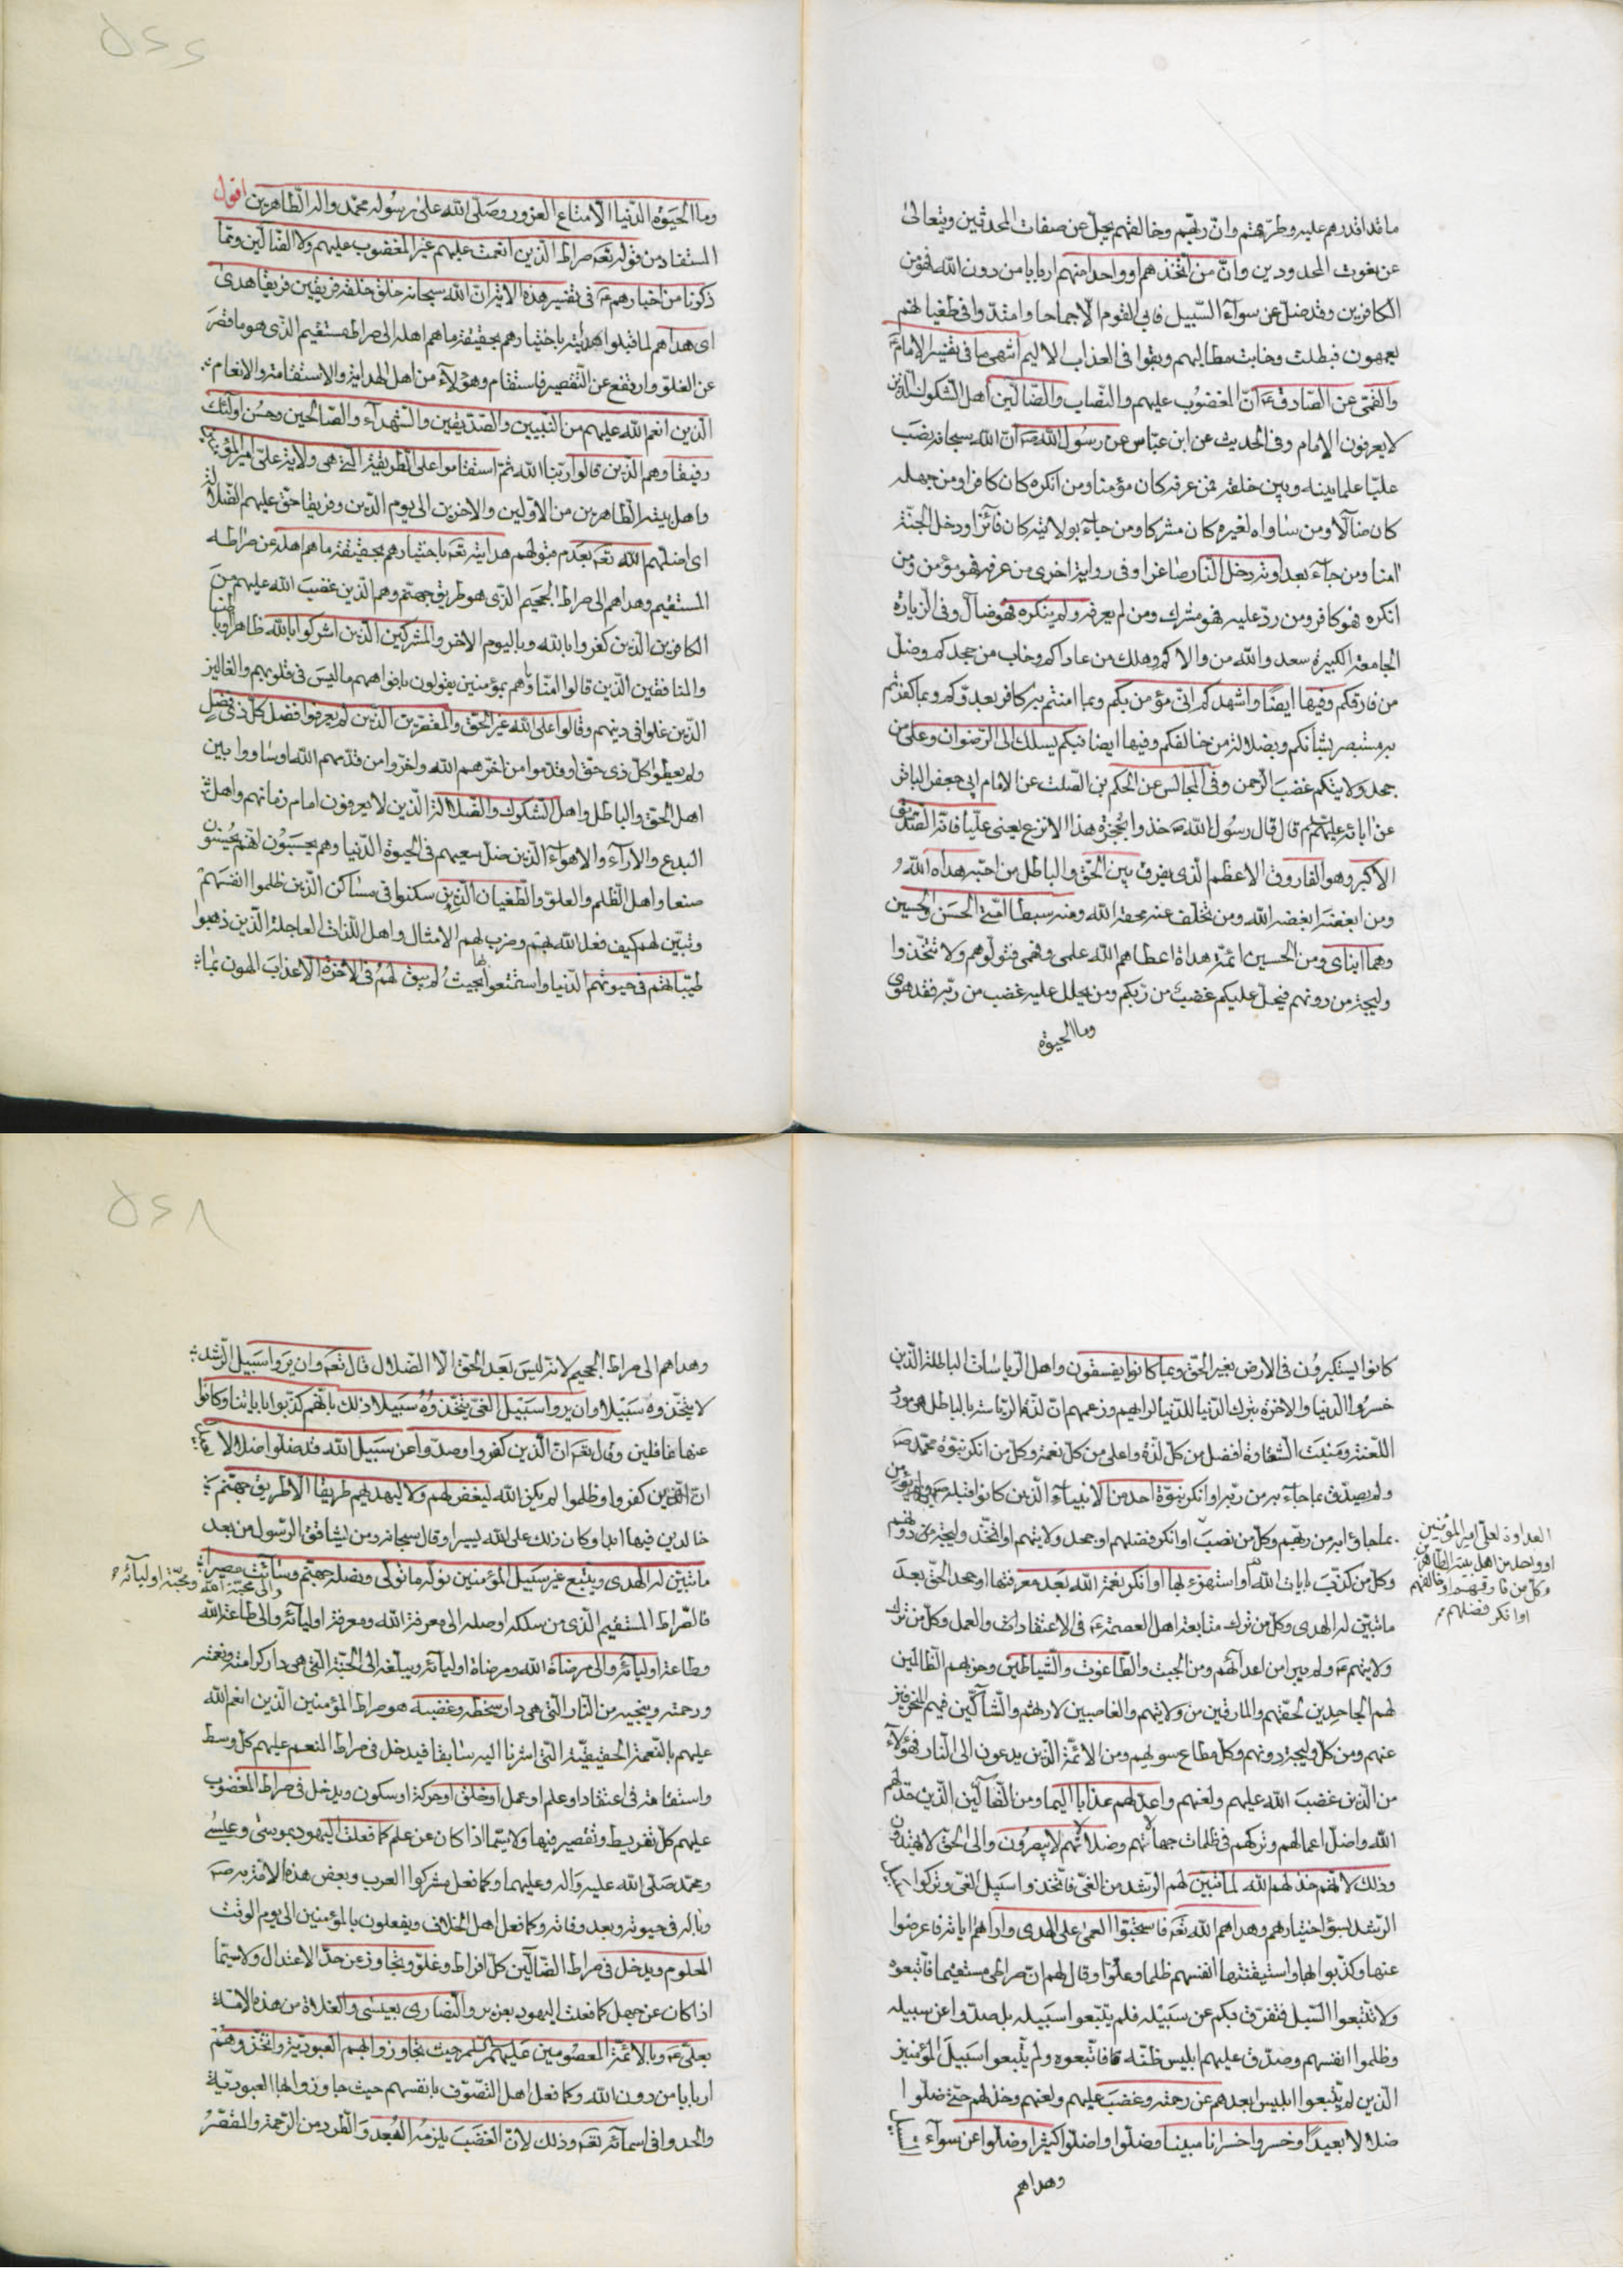 ما قدا قدرهم عليه وطرّهتم وانّ ربّهم وخالقهم يجلّ عن صفات المحدثين ويتعالى
عن نعوت المحدودين وانّ من اتّخذهم او واحدا منهم اربابا من دون الله فهو من
الكافرين وقد ضلّ عن سوآء السّبيل فابى القوم الّا جماحا وامتدّوا فى طغيانهم
يعمهون فبطلت وخابت مطالبهم وبقوا فى العذاب الاليم انتهى ما فى تفسير الامام ع
والقمّى عن الصّادق ع انّ المغضوب عليهم والنّصاب والضّالّين اهل الشّكوك الّذين
لا يعرفون الامام وفى الحديث عن ابن عبّاس عن رسول الله ص انّ الله سبحانه نصب
عليّا علما بينه وبين خلقه فمن عرفه كان مؤمنا ومن انكره كان كافرا ومن جهله
كان ضآلّا ومن ساواه لغيره كان مشركا ومن جآء بولايته كان فآئزا ودخل الجنّة
امنا ومن جآء بعداوته دخل النّار صاغرا وفى رواية اخرى من عرفه فهو مؤمن ومن
انكره فهو كافر ومن ردّ عليه فهو مشرك ومن لم يعرفه ولم ينكره فهو ضآلّ وفى الزّيارة
الجامعة الكبيرة سعد والله من والاكم وهلك من عاداكم وخاب من جحدكم وضلّ
من فارقكم وفيها ايضًا واشهدكم انّى مؤمن بكم وبما امنتم به كافر بعدوّكم وبما كفرتم
به مستبصر بشأنكم وبضلالة من خالفكم وفيها ايضا فبكم يسلك الى الرّضوان وعلى من
جحد ولايتكم غضب الرّحمن وفى المجالس عن الحكم بن الصّلت عن الامام ابى جعفر الباقر
عن ابائه عليهم قال قال رسول الله ص خذوا بحجزة هذا الانزع يعنى عليّا فانّه الصّدّيق
الاكبر وهو الفاروق الاعظم الّذى يفرق بين الحقّ والباطل من احبّه هداه الله و
ومن ابغضه ابغضه الله ومن تخلّف عنه محقه الله ومنه سبطا امّتى الحسَن والحسين
وهما ابناى ومن الحسين ائمّة هداة اعطاهم الله علمى وفهمى فتولّوهم ولا تتّخذوا
وليجة من دونهم فيحلّ عليكم غضب من ربّكم ومن يحلل عليه غضب من ربّه فقد هوى
وما الحيوة
وما الحيَوة الدّنيا الّا متاع الغرور وصلّى الله على رسوله محمّد واله الطّاهرين اقول
المستفاد من قوله تعَ صراط الّذين انعمت عليهم غير المغضوب عليهم ولا الضّالّين وممّا
ذكرنا من اخبارهم ع فى تفسير هذه الاية انّ الله سبحانه خلق خلقه فريقين فريقا هدى
اى هداهم لما قبلوا هدايته باختيارهم بحقيقة ما هم اهله الى صراط مستقيم الّذى هو ما قصَر
عن الغلوّ وارتفع عن التّقصير فاستقام وهؤلآء من اهل الهداية والاستقامة والانعام
الّذين انعم الله عليهم من النّبيين والصّدّيقين والشّهدآء والصّالحين وحسُن اولئك
رفيقا وهم الّذين قالوا ربّنا الله ثمّ استقاموا على الطّريقة الّتى هى ولاية علىّ امير المؤمنين ع
واهل بيته الطّاهرين من الاوّلين والاخرين الى يوم الدّين وفريقا حقّ عليهم الضّلالة
اى اضلّهم الله تعَ بعدم قبولهم هدايته تعَ باختيارهم بحقيقة ما هم اهله عن صراطه
المستقيم وهداهم الى صراط الجحيم الّذى هو طريق جهنّم وهم الّذين غضبَ الله عليهم من
الكافرين الّذين كفروا بالله وباليوم الاخر والمشركين الّذين اشركوا بالله ظاهرا وباطنا
والمنافقين الّذين قالوا امنّا وما هم بمؤمنين يقولون بافواههم ما ليسَ فى قلوبهم والغالين
الّذين غلوا فى دينهم وقالوا على الله غير الحقّ والمقصّرين الّذين لم يعرفوا فضل كلّ ذى فضل
ولم يعطوا كلّ ذى حقّه او قدّموا من اخّرهم الله واخّروا من قدّمهم الله او ساووا بين
اهل الحقّ والباطل واهل الشّكوك والضّلالة الّذين لا يعرفون امام زمانهم واهل
البدع والآرآء والاهوآء الّذين ضلّ سعيهم فى الحيوة الدّنيا وهم يحسَبُون انّهم يحسنون
صنعا واهل الظّلم والعلوّ والطّغيان الّذين سكنوا فى مساكن الّذين ظلموا انفسَهم
وتبيّن لهم كيف فعل الله بهم وضرب لهم الامثال واهل اللّذات العاجلة الّذين ذهبوا
طيّباتهم فى حيوتهم الدّنيا واستمتعوا بها بحيث لم يبق لهم فى الاخرة الّا عذاب الهون بما
كانوا يستكبرُون فى الارض بغير الحقّ وبما كانوا يفسقون واهل الرّياسات الباطلة الّذين
خسرُوا الدّنيا والاخرة بترك الدّنيا للدّنيا لرايهم وزعمهم انّ لذّة الرّياسة بالباطل هى مورد
اللّعنة ومنبت الشّقاوة افضل من كلّ لذّة واعلى من كلّ نعمة وكلّ من انكر نبوّة محمّد ص
ولم يصدّق بما جآء به من ربّه او انكر نبوّة احد من الانبيآء الّذين كانوا قبله
بما جاؤا به من ربّهم وكلّ من نصب او انكر فضلهم او جحد ولايتهم او اتّخذ وليجة من دونهم
العداوة لعلىّ امير المؤمنين
او واحد من اهل بيته الطّاهرين
وكلّ من فارقهم او خالفهم
او انكر فضلهم
وكلّ من كذّب بايات الله او استهزء بها او انكر نعمة الله بَعد معرفتها او جحد الحقّ بعدَ
ما تبيّن له الهدى وكلّ من ترك متابعة اهل العصمة ع فى الاعتقادات والعمل وكلّ من ترك
ولايتهم ع ولم يبرا من اعدآئهم ومن الجبت والطّاغوت والشّياطين وحزبهم الظّالمين
لهم الجاحدين لحقّهم والمارقين من ولايتهم والغاصبين لارثهم والشّآكّين فيهم المنحرفين
عنهم ومن كلّ وليجة دونهم وكلّ مطاع سويهم ومن الائمّة الّذين يدعون الى النّار فهؤلآء
من الّذين غضبَ الله عليهم ولعنهم واعدّ لهم عذابا اليما ومن الضّآلّين الّذين خذلهم
الله واضلّ اعمالهم وتركهم فى ظلمات جهالاتهم وضلالاتهم لا يبصرُون والى الحقّ لا يهتدون
وذلك لانّهم خذلهم الله لمّا تبيّن لهم الرّشد من الغىّ فاتّخذوا سبيل الغىّ وتركوا
الرّشد بسوء اختيارهم وهداهم الله تعَ فاستحبّوا العمى على الهدى واراهم اياته فاعرضوا
عنها وكذّبوا بها واستيقنتها انفسهم ظلما وعلوّا وقال لهم انّ صراطى مستقيما فاتّبعوه
ولا تتّبعوا السّبل فتفرّق بكم عن سبيله فلم يتّبعوا سبيله بل صدّوا عن سبيله
وظلموا انفسهم وصدّق عليهم ابليس ظنّه فاتّبعوه ولم يتّبعوا سبيل المؤمنين
الّذين لم يتّبعوا ابليس ابعدهم عن رحمته وغضب عليهم ولعنهم وخذلهم حتّى ضلّوا
ضلالا بعيدًا وخسروا خسرانا مبينا وضلّوا واضلّوا كثيرا وضلّوا عن سوآء
وهداهم
وهداهم الى صراط الجحيم لانّه ليسَ بَعد الحقّ الّا الضّلال قال تعَ وان يرَوا سَبيل الرّشد
لا يتّخذوهُ سَبيلا وان يروا سَبيل الغىّ يتّخذوهُ سَبيلا ذلك بانّهم كذّبوا باياتنا وكانوا
عنها غافلين وقال تعَ انّ الّذين كفروا وصدّوا عن سَبيل الله قد ضلّوا ضلالا
انّ الّذين كفروا وظلموا لم يكن الله ليغفر لهم ولا ليهديهم طريقا الّا طريق جهنّم
خالدين فيها ابدا وكان ذلك على الله يسيرا وقال سبحانه ومن يشاقق الرّسول من بعد
ما تبيّن له الهدى ويتّبع غير سَبيل المؤمنين نولّه ما تولّى ونصله جهنّم وسآئت مصيرا
والى محبّة الله ومحبّة اوليآئه
فالصّراط المستقيم الّذى من سلكه اوصله الى معرفة الله ومعرفة اوليآئه والى طاعة الله
وطاعة اوليآئه والى مرضاة الله ومرضاة اوليآئه ويبلّغه الى الجنّة الّتى هى دار كرامته ونعمته
ورحمته وينجيه من النّار الّتى هى دار سخطه وغضبه هو صراط المؤمنين الّذين انعم الله
عليهم بالنّعمة الحقيقيّة الّتى اشرنا اليه سابقا فيدخل فى صراط المنعم عليهم كلّ وسط
واستقامة فى اعتقاد او علم او عمل او خلق او حركة او سكون ويدخل فى صراط المغضوب
عليهم كلّ تفريط وتقصير فيها ولا سيّما اذا كان عن علم كما فعلت اليهود بموسى وعيسى
ومحمّد صلّى الله عليه واله وعليهما وكما فعل مشركوا العرب وبعض هذه الامّة به ص
وباله فى حيوته وبعد وفاته وكما فعل اهل الخلاف ويفعلون بالمؤمنين الى يوم الوقت
المعلوم ويدخل فى صراط الضّآلّين كلّ افراط وغلوّ وتجاوز عن حدّ الاعتدال ولا سيّما
اذا كان عن جهل كما فعلت اليهود بعزير والنّصارى بعيسى والغلاة من هذه الامّة
بعلىّ ع وبالائمّة المعصومين عليهم السّلم حيث تجاوزوا بهم العبوديّة واتّخذوهم
اربابا من دون الله وكما فعل اهل التّصوّف بانفسهم حيث جاوزوا بها العبوديّة
والحدوا فى اسمآئه تعَ وذلك لانّ الغضَبَ يلزمهُ البُعد والطّرد من الرّحمة والمقصّرُ